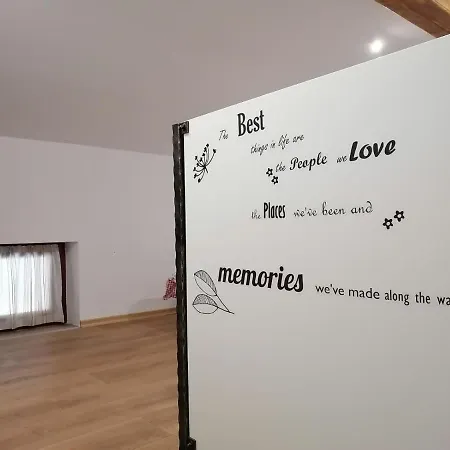 The Best
things in life are
the People we Love
the Places we've been and
memories we've made along the wa